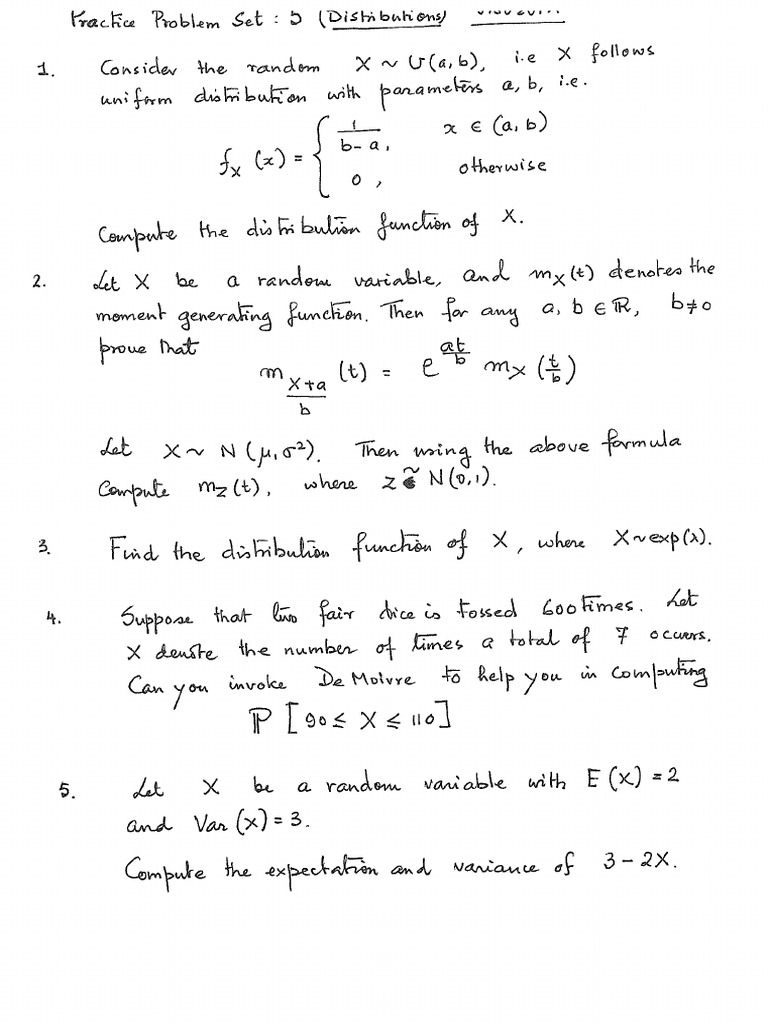 Practice Problem Set : 5 (Distributions)
1. Consider the random X ~ U(a,b), i.e X follows
uniform distribution with parameters a, b, i.e.
f_X (x) = { 1/(b-a), x ∈ (a,b)
0, otherwise
Compute the distribution function of X.
2. Let X be a random variable, and m_X(t) denotes the
moment generating function. Then for any a, b ∈ ℝ, b≠0
prove that
m_{(X+a)/b} (t) = e^{at/b} m_X (t/b)
Let X ~ N(μ,σ²). Then using the above formula
Compute m_Z(t), where Z ~ N(0,1).
3. Find the distribution function of X, where X~exp(λ).
4. Suppose that two fair dice is tossed 600 times. Let
X denote the number of times a total of 7 occurs.
Can you invoke De Moivre to help you in computing
ℙ [90 ≤ X ≤ 110]
5. Let X be a random variable with E(X) = 2
and Var(X) = 3.
Compute the expectation and variance of 3 - 2X.